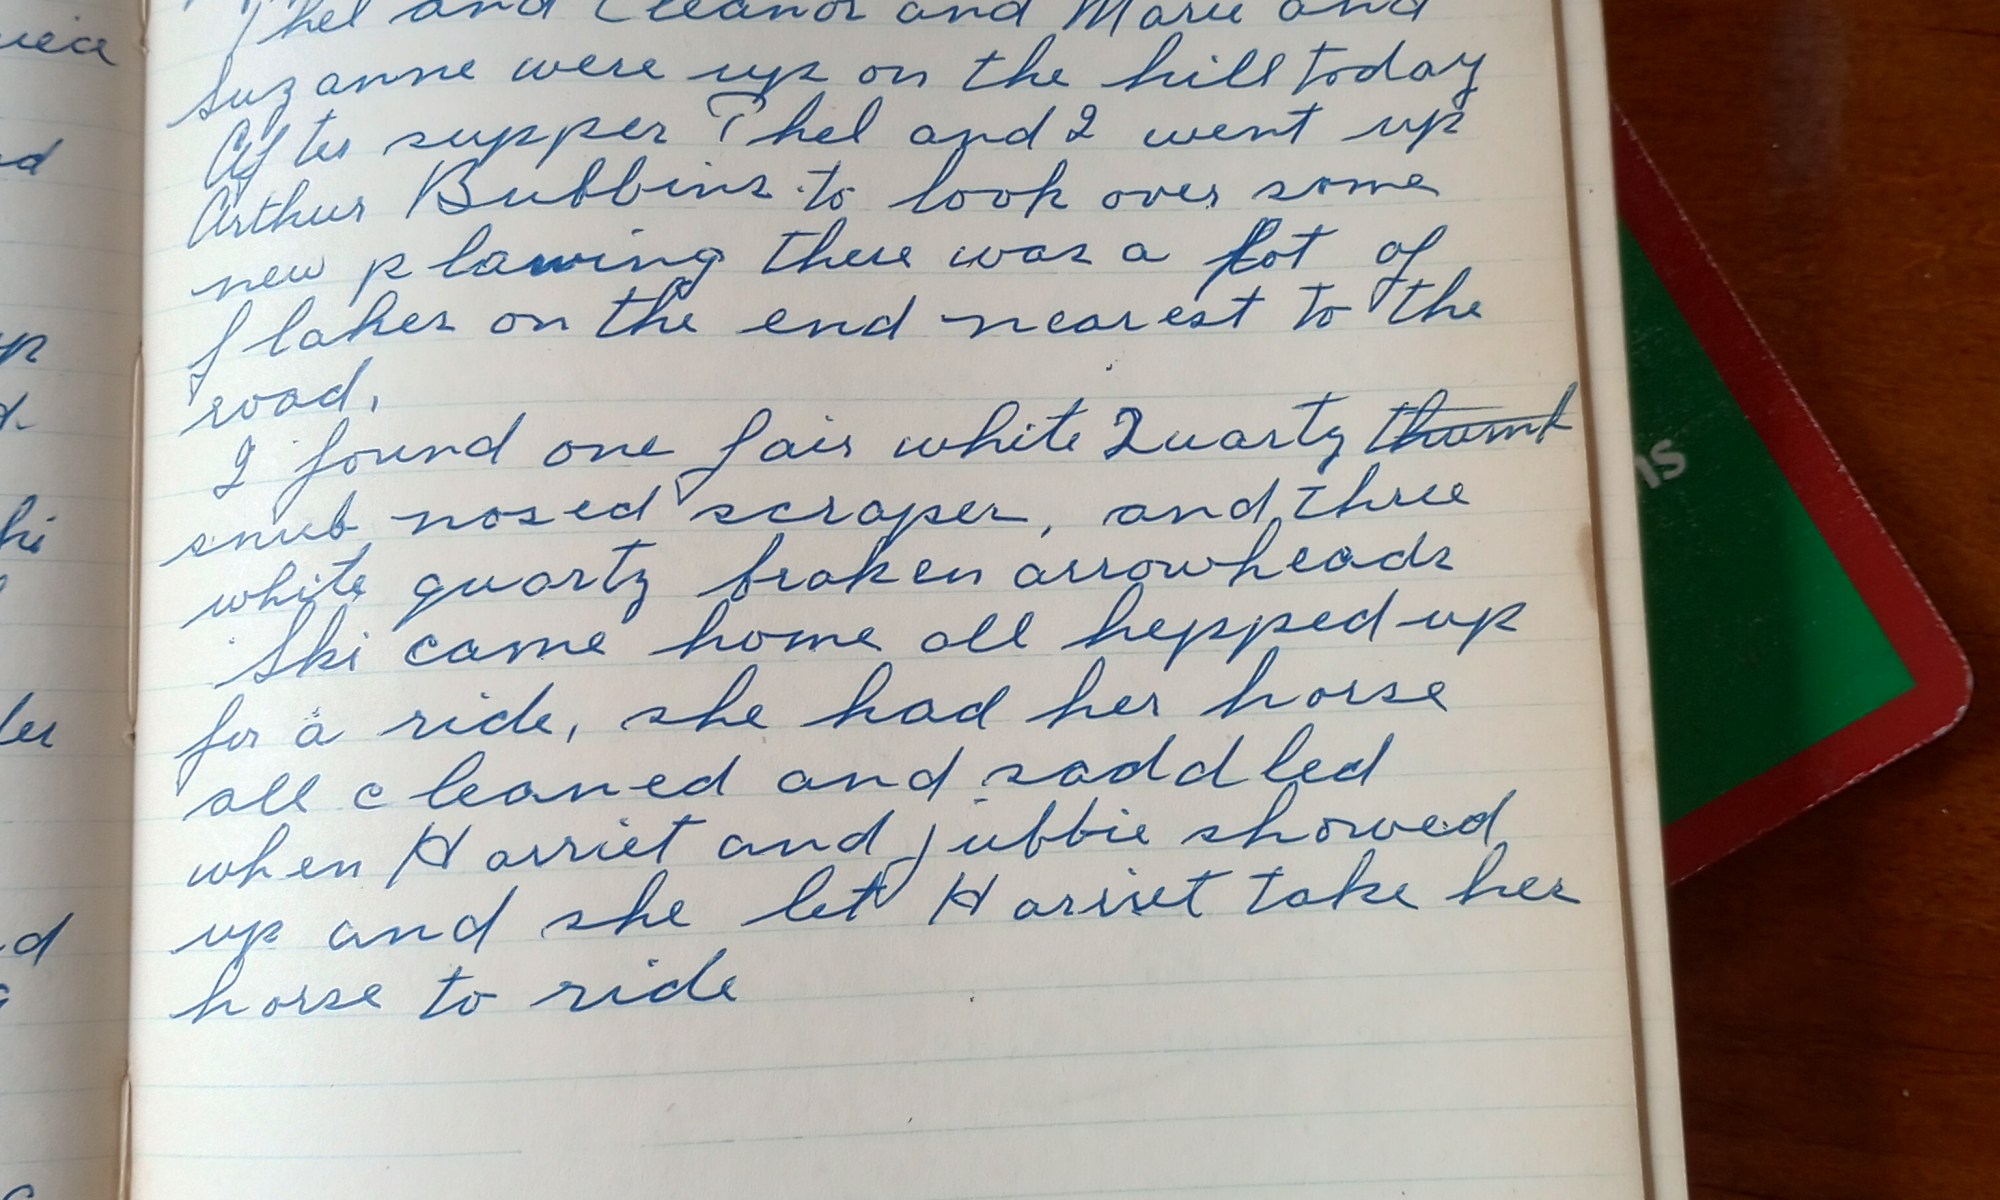 Thel and Eleanor and Marie and
Suzanne were up on the hill today
After supper Thel and I went up
Arthur Bubbins to look over some
new plawing there was a lot of
flakes on the end nearest to the
road.
I found one fair white Quartz thumb
snub nosed scraper, and three
white quartz broken arrowheads
Ski came home all hepped up
for a ride, she had her horse
all cleaned and saddled
when Harriet and Jubbie showed
up and she let Harriet take her
horse to ride